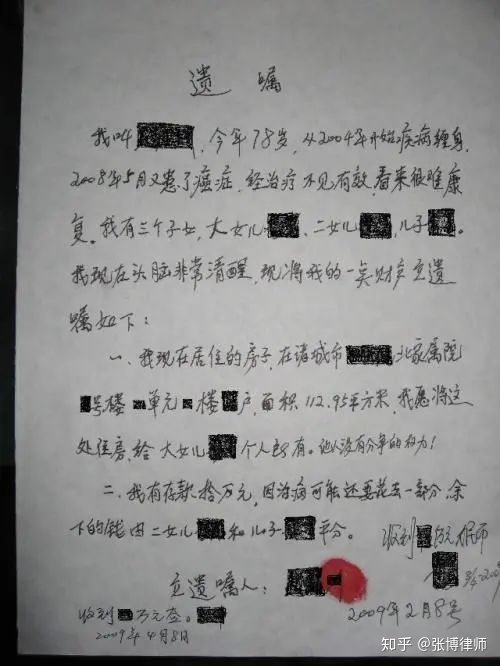 遗 嘱
我叫，今年78岁，从2004年开始疾病缠身，
2008年5月又患了癌症，经治疗不见有效，看来很难康
复。我有三个子女，大女儿、二女儿、儿子。
我现在头脑非常清醒，现将我的一点财产立遗
嘱如下：
一、我现在居住的房子，在诸城市北家属院
号楼单元楼户，面积112.95平方米，我愿将这
处住房，给大女儿个人所有。他人没有分争的权力！
二、我有存款拾万元，因治病可能还要花去一部分，余
下的钱由二女儿和儿子平分。
收到万元
立遗嘱人：
2009年2月8号
收到万元整。
2009年4月8日
知乎 @张博律师